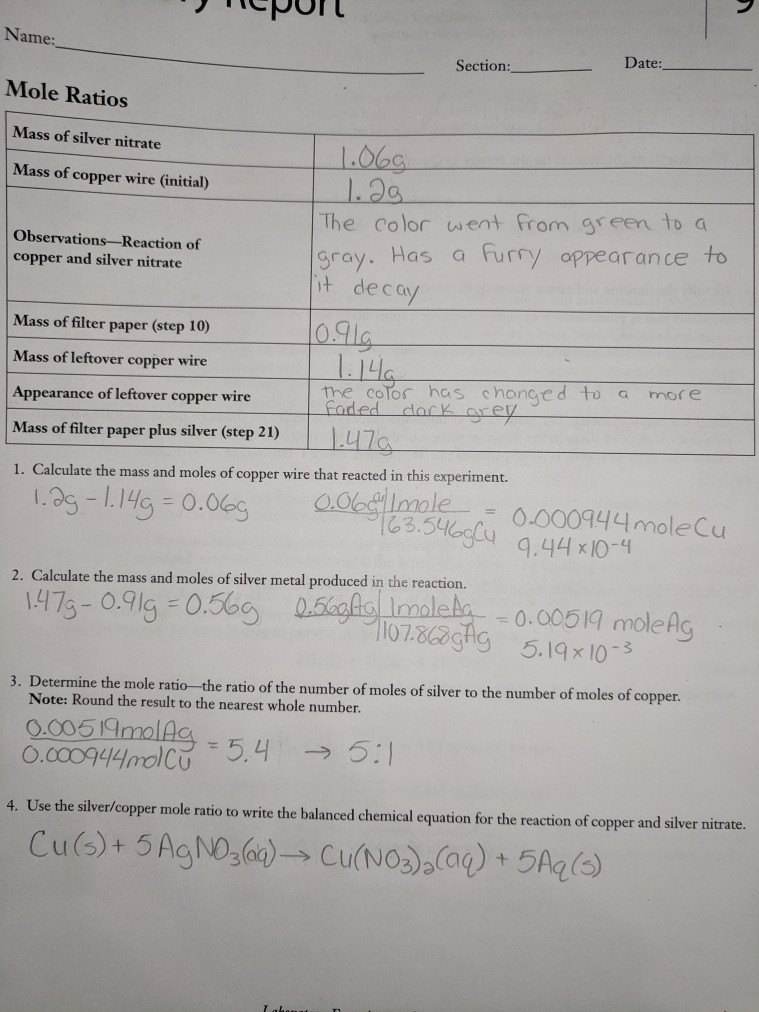 Report
Name:
Section: Date:
Mole Ratios
Mass of silver nitrate 1.06g
Mass of copper wire (initial) 1.2g
Observations—Reaction of copper and silver nitrate
The color went from green to a
gray. Has a furry appearance to
it decay
Mass of filter paper (step 10) 0.91g
Mass of leftover copper wire 1.14g
Appearance of leftover copper wire
The color has changed to a more
faded dark grey
Mass of filter paper plus silver (step 21) 1.47g
1. Calculate the mass and moles of copper wire that reacted in this experiment.
1.2g - 1.14g = 0.06g 0.06g Cu | 1 mole / 63.546g Cu = 0.000944 mole Cu
9.44 x 10-4
2. Calculate the mass and moles of silver metal produced in the reaction.
1.47g - 0.91g = 0.56g 0.56g Ag | 1 mole Ag / 107.868g Ag = 0.00519 mole Ag
5.19 x 10-3
3. Determine the mole ratio—the ratio of the number of moles of silver to the number of moles of copper.
Note: Round the result to the nearest whole number.
0.00519 mol Ag / 0.000944 mol Cu = 5.4 → 5:1
4. Use the silver/copper mole ratio to write the balanced chemical equation for the reaction of copper and silver nitrate.
Cu(s) + 5AgNO3(aq) → Cu(NO3)2(aq) + 5Ag(s)